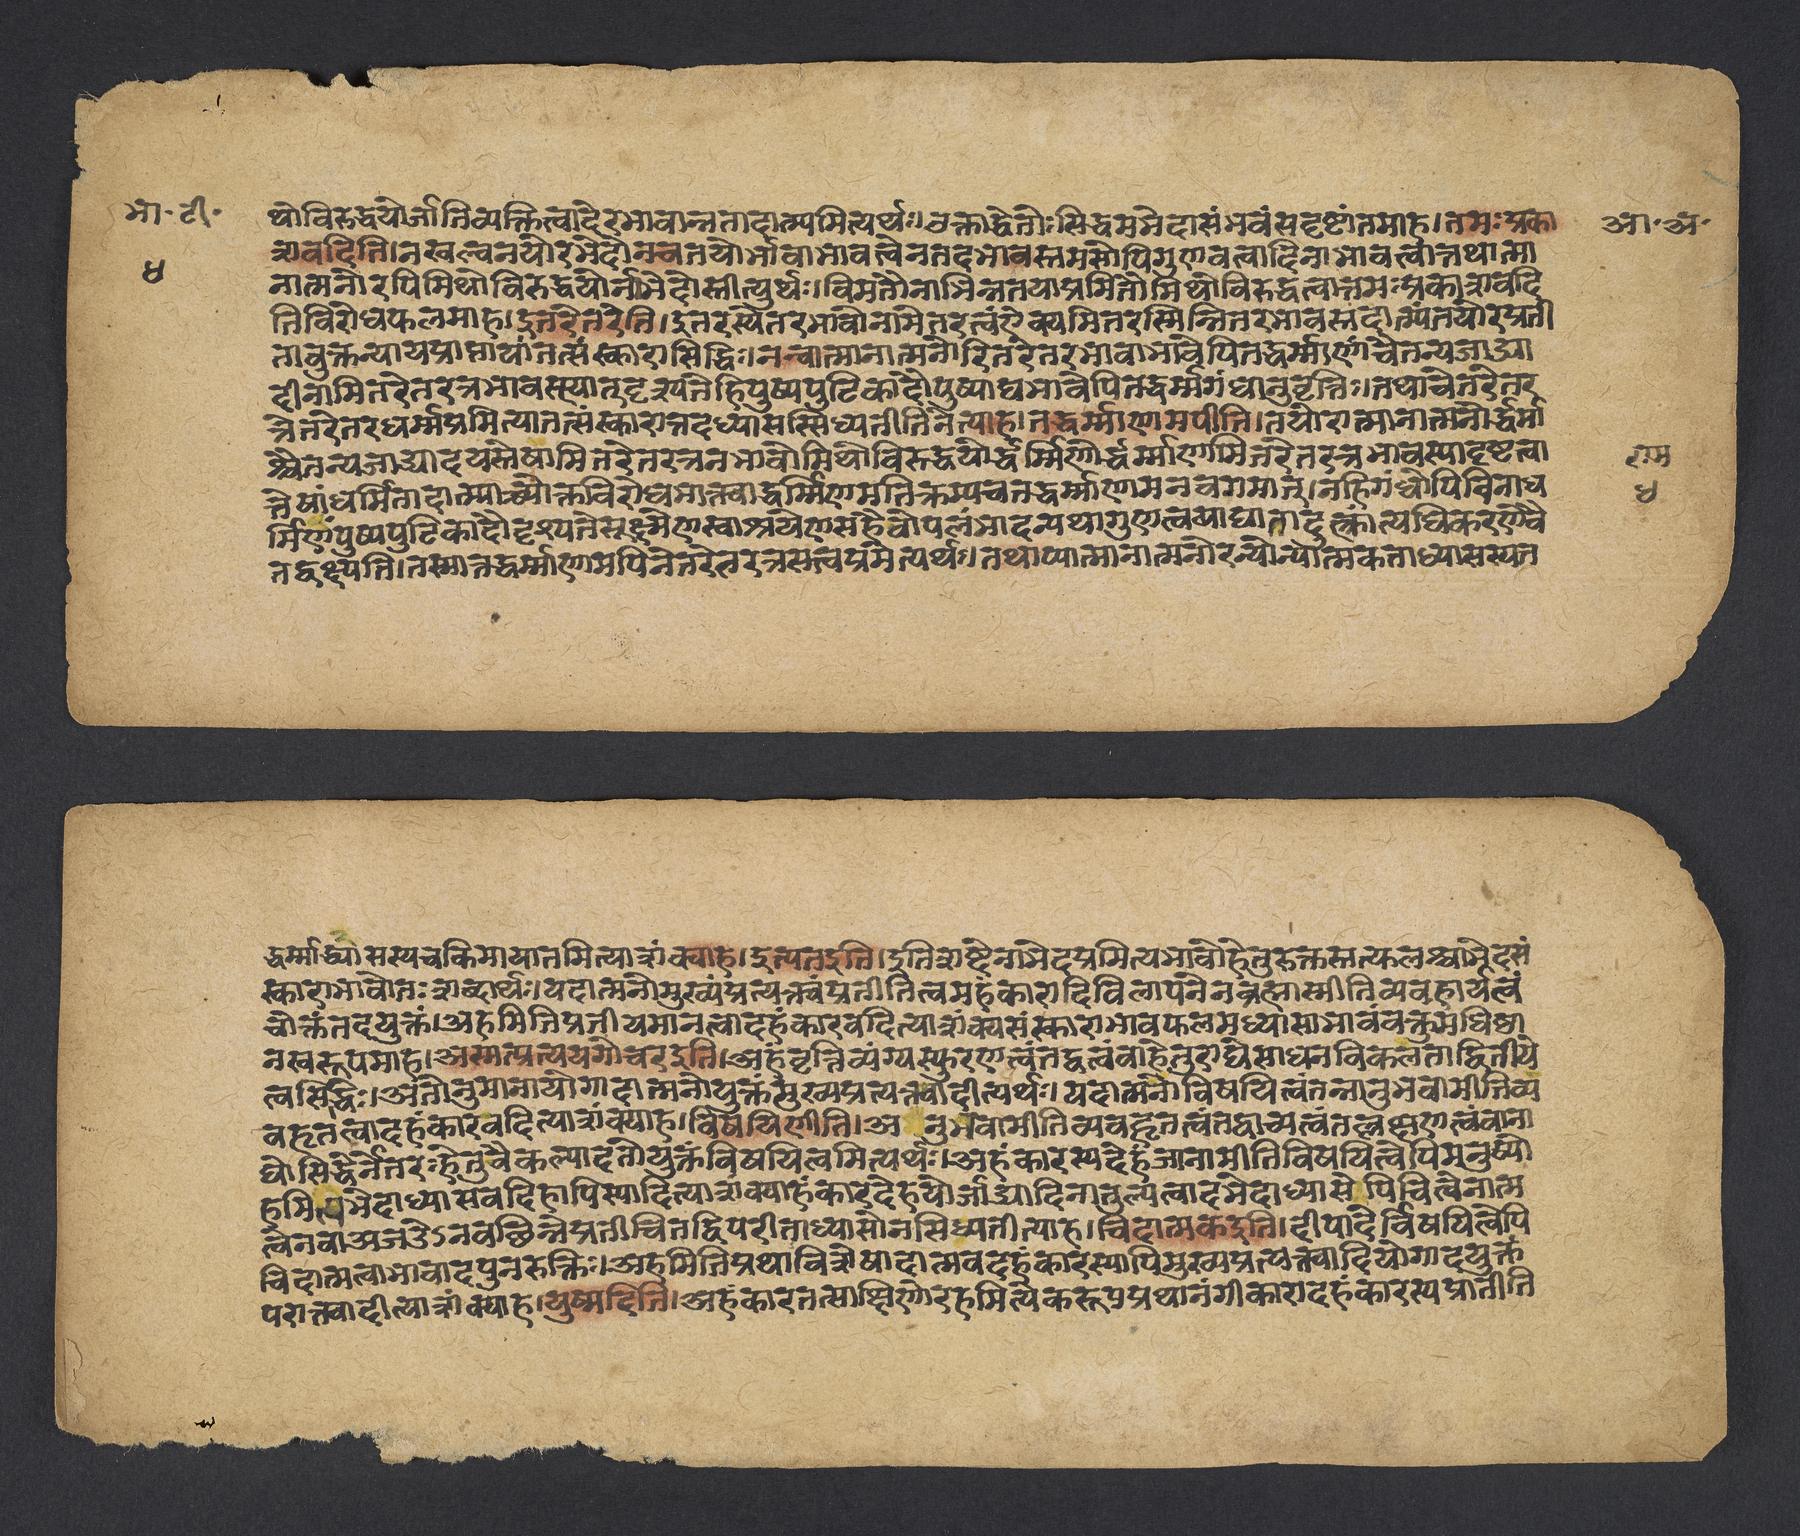 भा॰ टी॰
४
आ॰ अ॰
थोविरुद्धयोर्जातिव्यक्तित्वादेरभावान्नतादात्म्यमित्यर्थः। उक्ताद्धेतोः सिद्धमभेदासंभवंसदृष्टांतमाह। तमःप्रका
शवदिति। नखल्वनयोरभेदोनचतयोर्भावाभावत्वेनतदभावस्तमसोपिगुणवत्वादिनाभावत्वात्तथात्मा
नात्मनोरपिमिथोविरुद्धयोर्नाभेदोस्तीत्यर्थः। विमतौनाभिन्नतयाप्रमितौमिथोविरुद्धत्वात्तमःप्रकाशवदि
तिविरोधफलमाह। इतरेतरेति। इतरस्येतरभावोनामेतरत्वंऐक्यमितरस्मिन्नितरभावस्तादात्म्यंतयोरप्रती
तावुक्तन्यायप्राप्तायांतत्संस्कारासिद्धिः। नन्वात्मानात्मनोरितरेतरभावाभावेपितद्धर्म्माणांचैतन्यजाड्या
दीनामितरेतरत्रभावस्स्यात्दृश्यतेहिपुष्पपुटिकादौपुष्पाद्यभावेपितद्धर्म्मगंधानुवृत्तिः। तथाचेतरेतर
त्रेतरेतरधर्म्मप्रमित्यातत्संस्कारात्तदध्यासस्सिध्यतीतिनेत्याह। तद्धर्म्माणामपीति। तयोरात्मानात्मनोर्द्धर्मा
श्चैतन्यजाड्यादयस्तेषामितरेतरत्रनभावोमिथोविरुद्धयोर्द्धर्म्मिणोर्द्धर्म्माणामितरेतरत्रभावस्यादृष्टत्वा
त्तेषांधर्मितादात्म्याच्चोक्तविरोधभाक्त्वाद्धर्म्मिणमतिक्रम्यचतद्धर्म्माणामनवगमात्। नहिगंधोपिविनाध
राम
४
र्मिणंपुष्पपुटिकादौदृश्यतेसूक्ष्मेणस्वाश्रयेणसहैवोपलंभादन्यथागुणत्वव्याघाताद्
तद्वक्ष्यति। तस्मात्तद्धर्म्माणामपिनेतरेतरत्रसत्त्वप्रमेत्यर्थः। तथाप्यात्मानात्मनोरन्योन्यात्मकताध्यासस्यत
द्धर्म्माध्यासस्यचकिमायातमित्याशंक्याह। इत्यतइति। इतिशब्देनाभेदप्रमित्यभावोहेतुरुक्तस्तत्फलश्चाभेदसं
स्काराभावोतःशब्दार्थः। यदात्मनोमुख्यंप्रत्यक्त्वंप्रतीतित्वमहंकारादिविलापनेनब्रह्मास्मीतिव्यवहार्यत्वं
चोक्तंतदयुक्तं। अहमितिप्रतीयमानत्वादहंकारवदित्याशंक्यसंस्काराभावफलमध्यासाभावंवक्तुमधिष्ठा
नस्वरूपमाह। अस्मत्प्रत्ययगोचरइति। अहंवृत्तिव्यंग्यस्फुरणत्वंतद्वत्वंवाहेतुराद्येसाधनविकलताद्वितीये
त्वसिद्धिः। अतोनुमानायोगादात्मनोयुक्तंमुख्यप्रत्यक्त्वादीत्यर्थः। यदात्मनोविषयित्वंतन्नानुभवामीतिव्य
वहृतत्वादहंकारवदित्याशंक्याह। विषयिणीति। अनुभवामीतिव्यवहृतत्वंतद्वाच्यत्वंतल्लक्ष्यत्वंवाना
द्योसिद्धेर्नेतरःहेतुवैकल्यादतोयुक्तंविषयित्वमित्यर्थः। अहंकारस्यदेहंजानामीतिविषयित्वेपिमनुष्यो
हमित्यभेदाध्यासवदिहापिस्यादित्याशंक्याहंकारदेहयोर्जाड्यादिनातुल्यत्वादभेदाध्यासेपिचित्वेनात्म
त्वेनवाअजडेऽनवच्छिन्नेप्रतीचितद्विपरीताध्यासोनसिध्यतीत्याह। चिदात्मकइति। दीपादेर्विषयित्वेपि
चिदात्मत्वाभावादपुनरुक्तिः। अहमितिप्रथाविशेषादात्मवदहंकारस्यापिमुख्यप्रत्यक्त्वादियोगादयुक्तं
पराक्त्वादीत्याशंक्याह। युष्मदिति। अहंकारतत्साक्षिणोरहमित्येकरूपप्रथानंगीकारादहंकारस्यप्रातीति